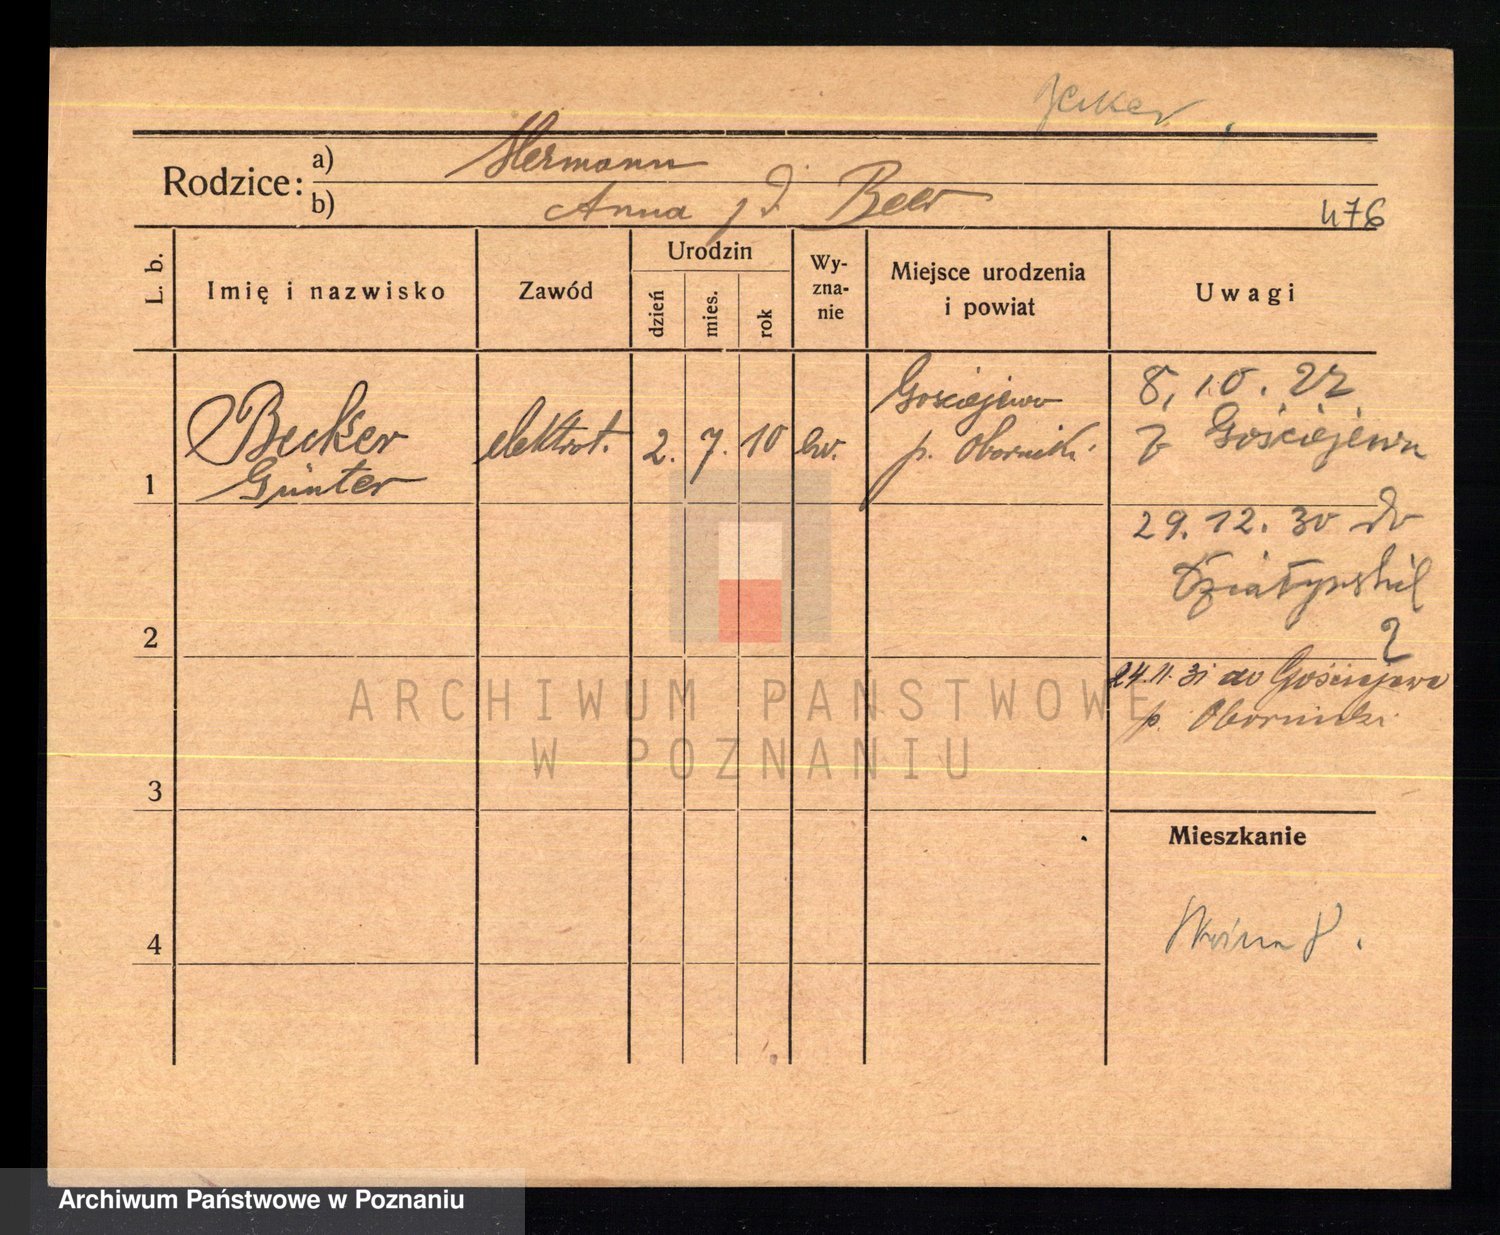 Rodzice:
a) Hermann
b) Anna z d. Beer
476
L. b.
Imię i nazwisko
Zawód
Urodzin
dzień
mies.
rok
Wy-
zna-
nie
Miejsce urodzenia
i powiat
Uwagi
1
Becker
Günter
elektrot.
2.
7.
10
ew.
Gościejewo
p. Oborniki
8. 10. 27
z Gościejewa
29. 12. 30 do
Działyńskich
2
24. 11. 31 do Gościejewa
p. Oborniki
2
3
4
Mieszkanie
ARCHIWUM PAŃSTWOWE
W POZNANIU
Archiwum Państwowe w Poznaniu